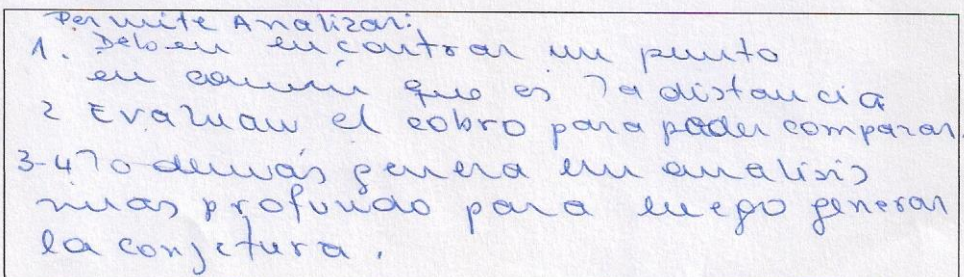 Permite Analizar:
1. Deben encontrar un punto
en común que es la distancia
2 Evaluan el cobro para poder comparar.
3-4 lo demás genera un analisis
mas profundo para luego generar
la conjetura.